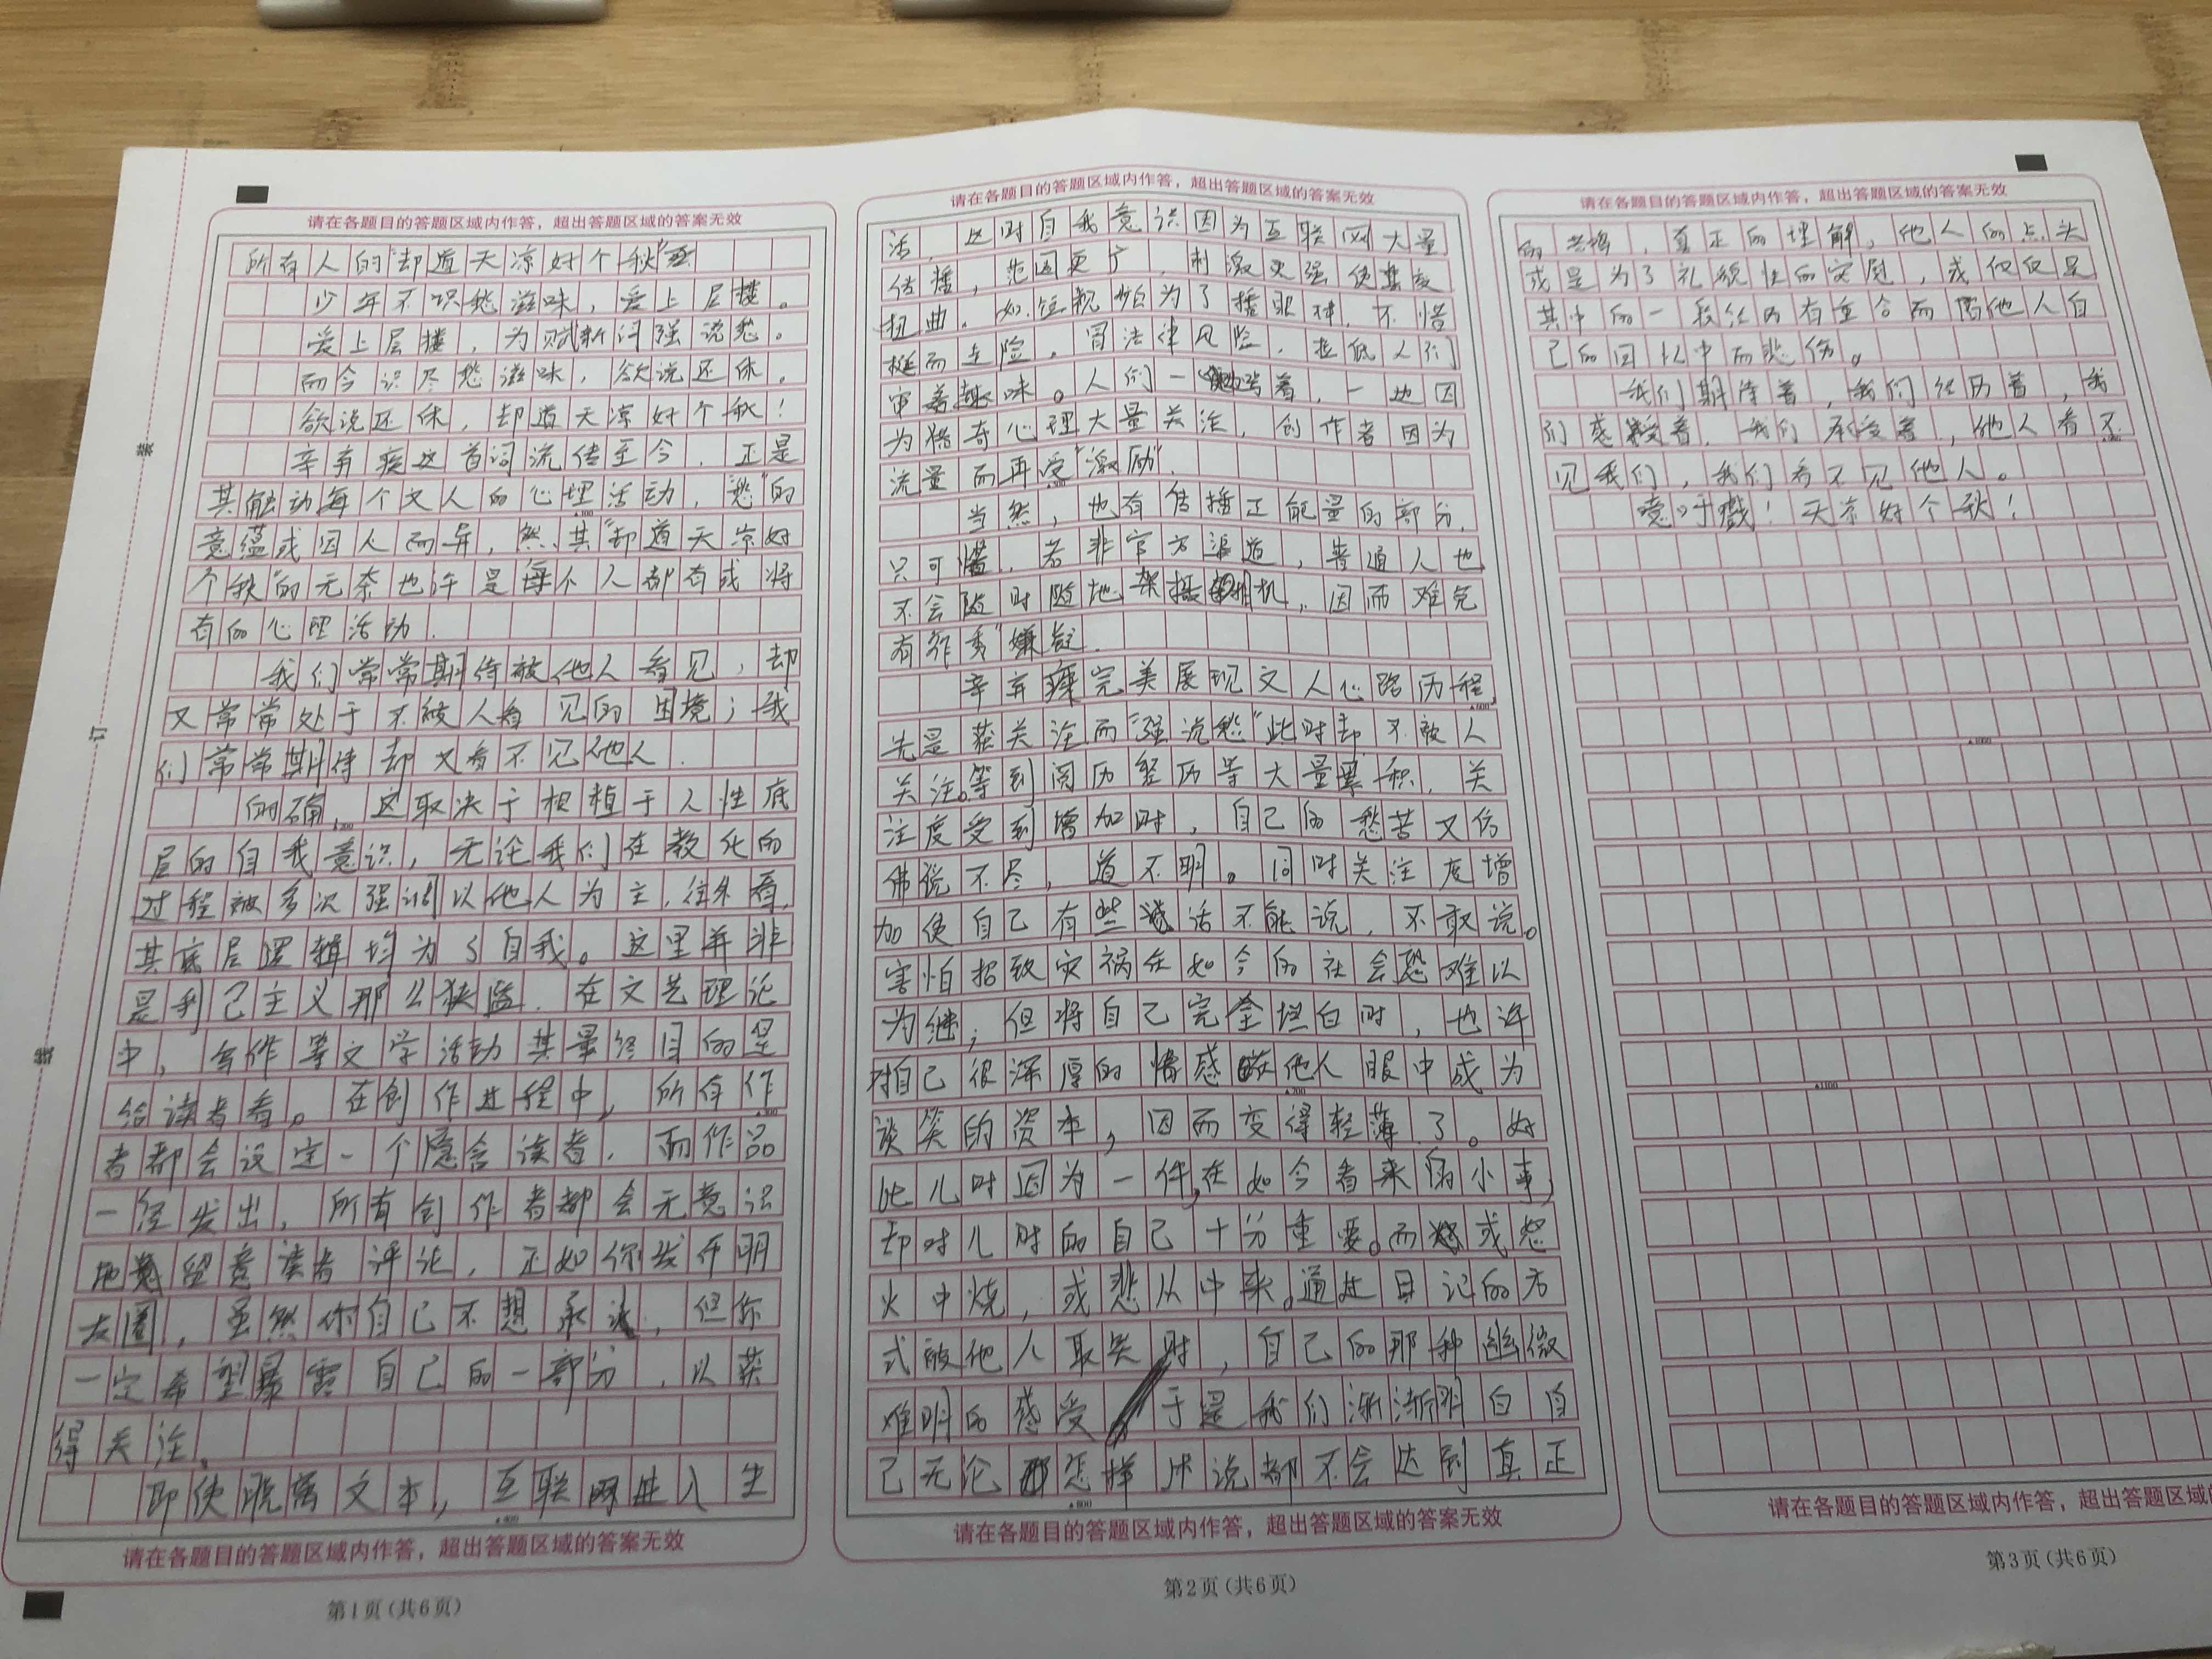 请在各题目的答题区域内作答，超出答题区域的答案无效
所有人的“却道天凉好个秋”
少年不识愁滋味，爱上层楼。
爱上层楼，为赋新词强说愁。
而今识尽愁滋味，欲说还休。
欲说还休，却道天凉好个秋！
辛弃疾这首词流传至今，正是
其触动每个文人的心理活动，“愁”的
意蕴或因人而异，然其“却道天凉好
个秋”的无奈也许是每个人都有或将
有的心理活动．
我们常常期待被他人看见，却
又常常处于不被人看见的困境；我
们常常期待却又看不见他人．
的确，这取决于根植于人性底
层的自我意识，无论我们在教化的
过程被多次强调以他人为主，往外看，
其底层逻辑均为了自我。这里并非
是利己主义那么狭隘．在文艺理论
中，写作等文学活动其最终目的是
给读者看。在创作进程中，所有作
者都会设定一个隐含读者．而作品
一经发出，所有创作者都会无意识
地留意读者评论，正如你发布朋
友圈，虽然你自己不想承认，但你
一定希望暴露自己的一部分，以获
得关注．
即使脱离文本，互联网进入生
请在各题目的答题区域内作答，超出答题区域的答案无效
第1页(共6页)
请在各题目的答题区域内作答，超出答题区域的答案无效
活，这时自我意识因为互联网大量
传播，范围更广，刺激更强使其
扭曲．如短视频为了播眼球，不惜
挺而走险，冒法律风险，拉低人们
审着趣味。人们一边着，一边因
为猎奇心理大量关注，创作者因为
流量而再受“激励”．
当然，也有传播正能量的部分，
只可惜，若非官方渠道，普通人也
不会随时随地架摄相机，因而难免
有“作秀”嫌疑．
辛弃疾完美展现文人心路历程，
先是获关注而“强说愁”此时却不被人
关注。等到阅历经历等大量累积，关
注度受到增加时，自己的愁苦又仿
佛说不尽，道不明。同时关注度增
加使自己有些话不能说，不敢说。
害怕招致灾祸在如今的社会恐难以
为继；但将自己完全坦白时，也许
对自己很深厚的情感在他人眼中成为
谈笑的资本，因而变得轻薄了。好
比儿时因为一件，在如今看来的小事，
却对儿时的自己十分重要。而或怒
火中烧，或悲从中来。通过日记的方
式被他人取笑时，自己的那种幽微
难明的感受于是我们渐渐明白自
己无论怎样诉说都不会达到真正
请在各题目的答题区域内作答，超出答题区域的答案无效
第2页(共6页)
请在各题目的答题区域内作答，超出答题区域的答案无效
的共鸣，真正的理解，他人的点头
或是为了礼貌性的安慰，或仅仅是
其中的一段经历有重合而陷他人自
己的回忆中而悲伤。
我们期待着，我们经历着，我
们感受着，我们承受着，他人看不
见我们，我们看不见他人。
噫吁戲！天凉好个秋！
请在各题目的答题区域内作答，超出答题区域
第3页(共6页)
装
订
线